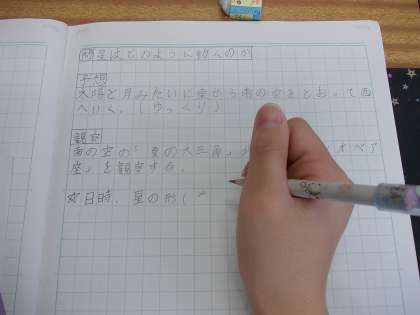 問星はどのように動くのか
予想
太陽と月みたいに東から南の空をとおって西
へいく。(ゆっくり)
観察
南の空の「夏の大三角」
座」を観察する。
日時、星の形(